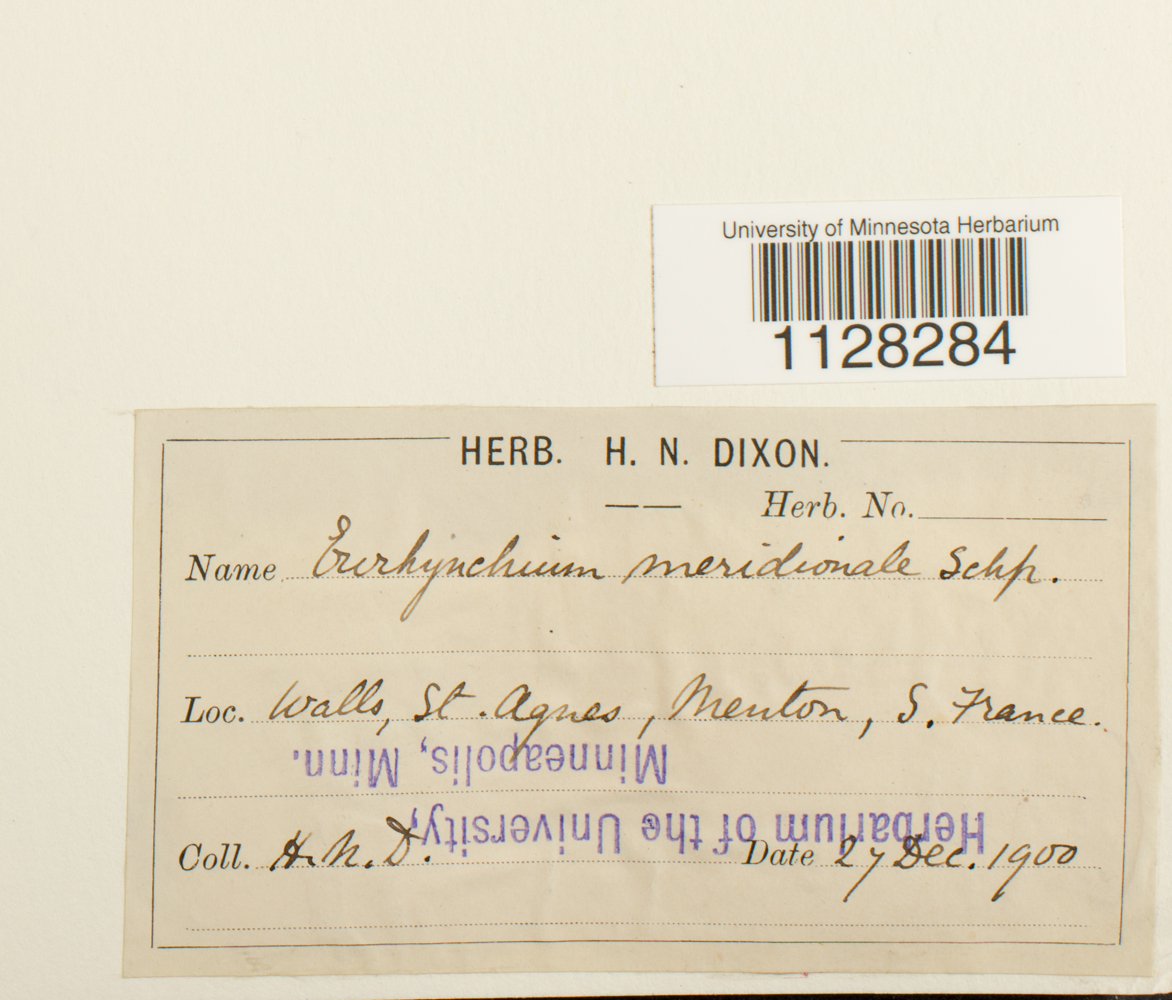 University of Minnesota Herbarium
1128284
HERB. H. N. DIXON.
Herb. No.
Name Eurhynchium meridionale Schp.
Loc. Walls, St. Agnes, Menton, S. France.
Minneapolis, Minn.
Herbarium of the University,
Coll. H. N. D. Date 27 Dec. 1900